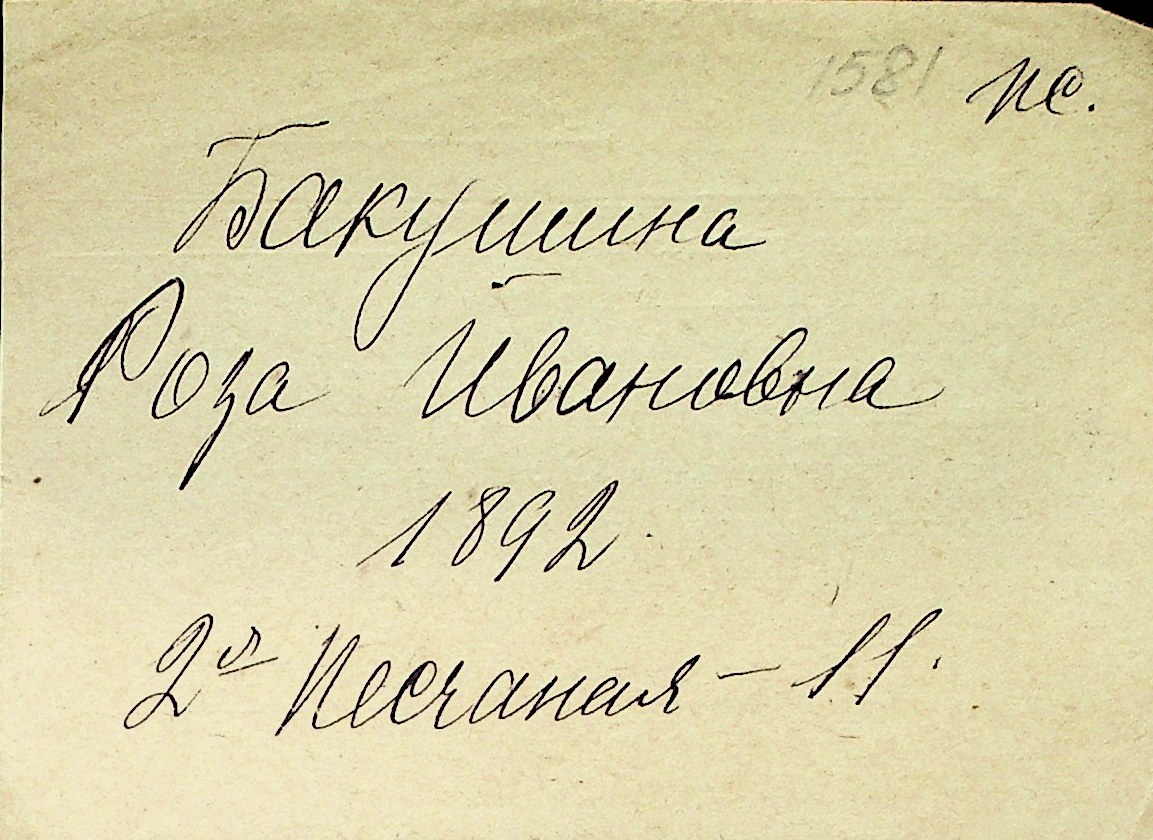 1581 пс.
Бакушина
Роза Ивановна
1892.
2я Песчаная - 11.